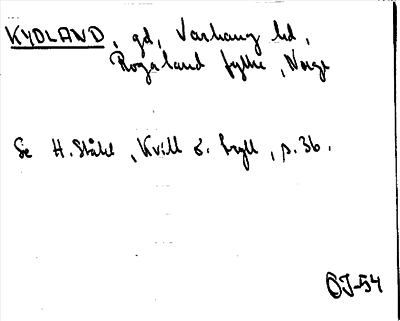 KYDLAND, gd, Varhaug hd,
Rogaland fylke, Norge
Se H. Ståhl, Kvill o. Bryll, p. 36.
OJ-54